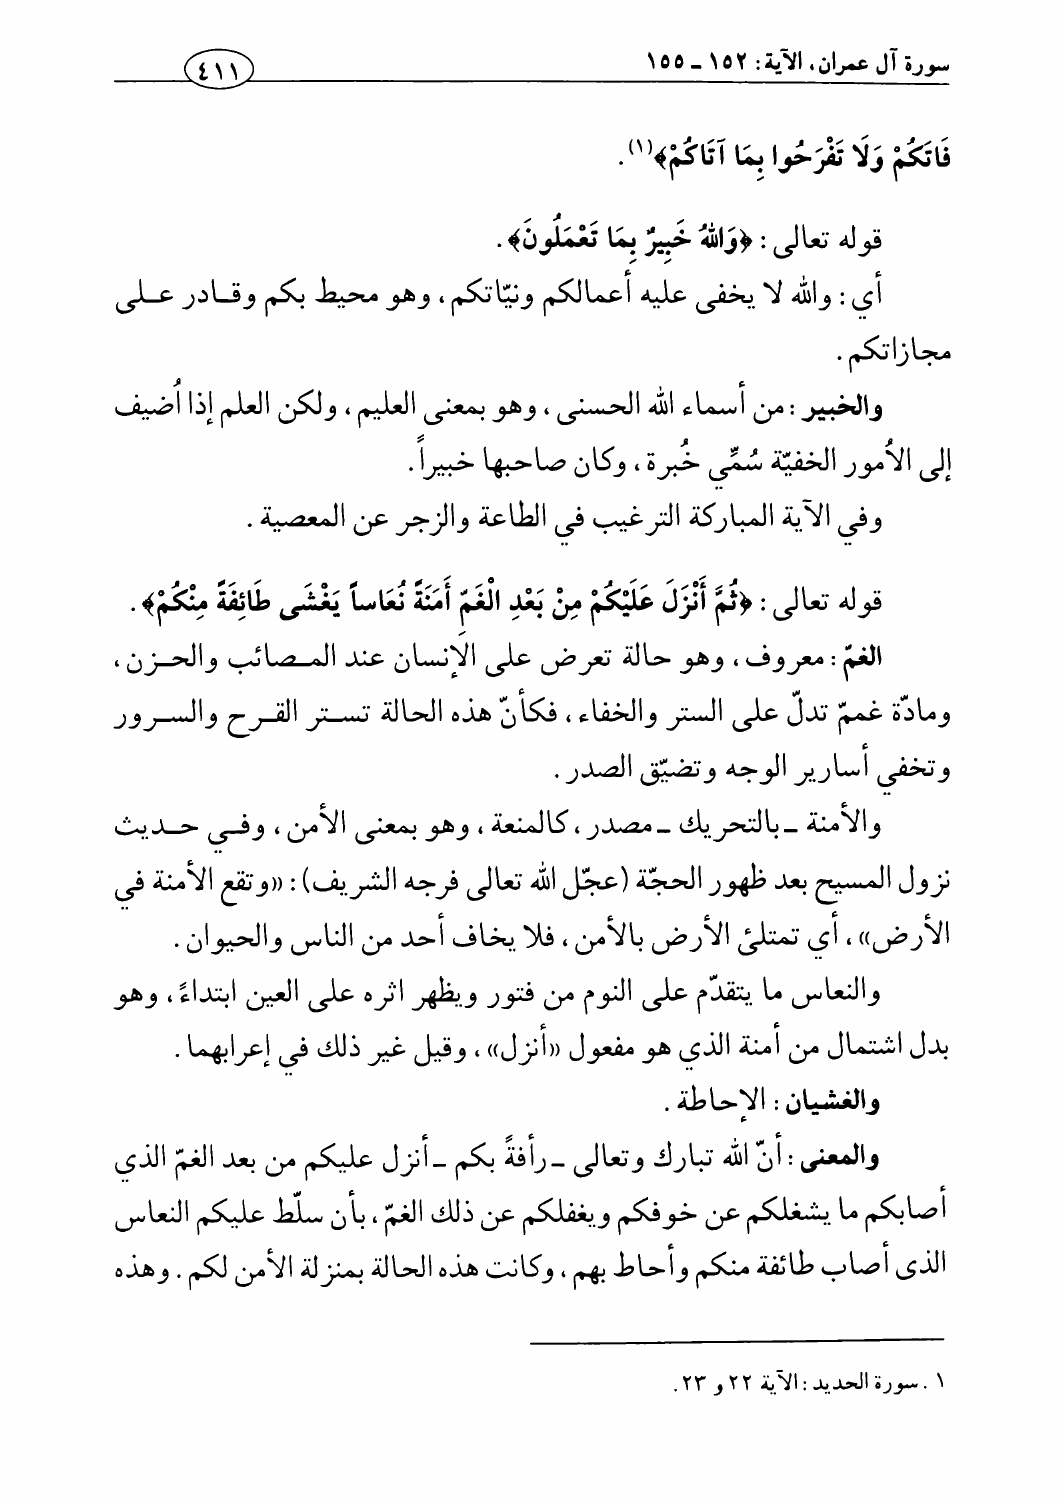 سورة آل عمران، الآية: ١٥٢ ـ ١٥٥
٤١١
فَاتَكُمْ وَلَا تَفْرَحُوا بِمَا آتَاكُمْ﴾(١).
قوله تعالى: ﴿وَاللهُ خَبِيرٌ بِمَا تَعْمَلُونَ﴾.
أي: والله لا يخفى عليه أعمالكم ونيّاتكم، وهو محيط بكم وقـادر عـلى
مجازاتكم.
والخبير: من أسماء الله الحسنى، وهو بمعنى العليم، ولكن العلم إذا اُضيف
إلى الاُمور الخفيّة سُمِّي خُبرة، وكان صاحبها خبيراً.
وفي الآية المباركة الترغيب في الطاعة والزجر عن المعصية.
قوله تعالى: ﴿ثُمَّ أَنْزَلَ عَلَيْكُمْ مِنْ بَعْدِ الْغَمِّ أَمَنَةً نُعَاساً يَغْشَى طَائِفَةً مِنْكُمْ﴾.
الغمّ: معروف، وهو حالة تعرض على الإنسان عند المـصائب والحـزن،
ومادّة غممّ تدلّ على الستر والخفاء، فكأنّ هذه الحالة تسـتر القـرح والسـرور
وتخفي أسارير الوجه وتضيّق الصدر.
والأمنة ـ بالتحريك ـ مصدر، كالمنعة، وهو بمعنى الأمن، وفـي حـديث
نزول المسيح بعد ظهور الحجّة (عجّل الله تعالى فرجه الشريف): «وتقع الأمنة في
الأرض»، أي تمتلئ الأرض بالأمن، فلا يخاف أحد من الناس والحيوان.
والنعاس ما يتقدّم على النوم من فتور ويظهر اثره على العين ابتداءً، وهو
بدل اشتمال من أمنة الذي هو مفعول «أنزل»، وقيل غير ذلك في إعرابهما.
والغشيان: الإحاطة.
والمعنى: أنّ الله تبارك وتعالى ـ رأفةً بكم ـ أنزل عليكم من بعد الغمّ الذي
أصابكم ما يشغلكم عن خوفكم ويغفلكم عن ذلك الغمّ، بأن سلّط عليكم النعاس
الذى أصاب طائفة منكم وأحاط بهم، وكانت هذه الحالة بمنزلة الأمن لكم. وهذه
١. سورة الحديد: الآية ٢٢ و ٢٣.